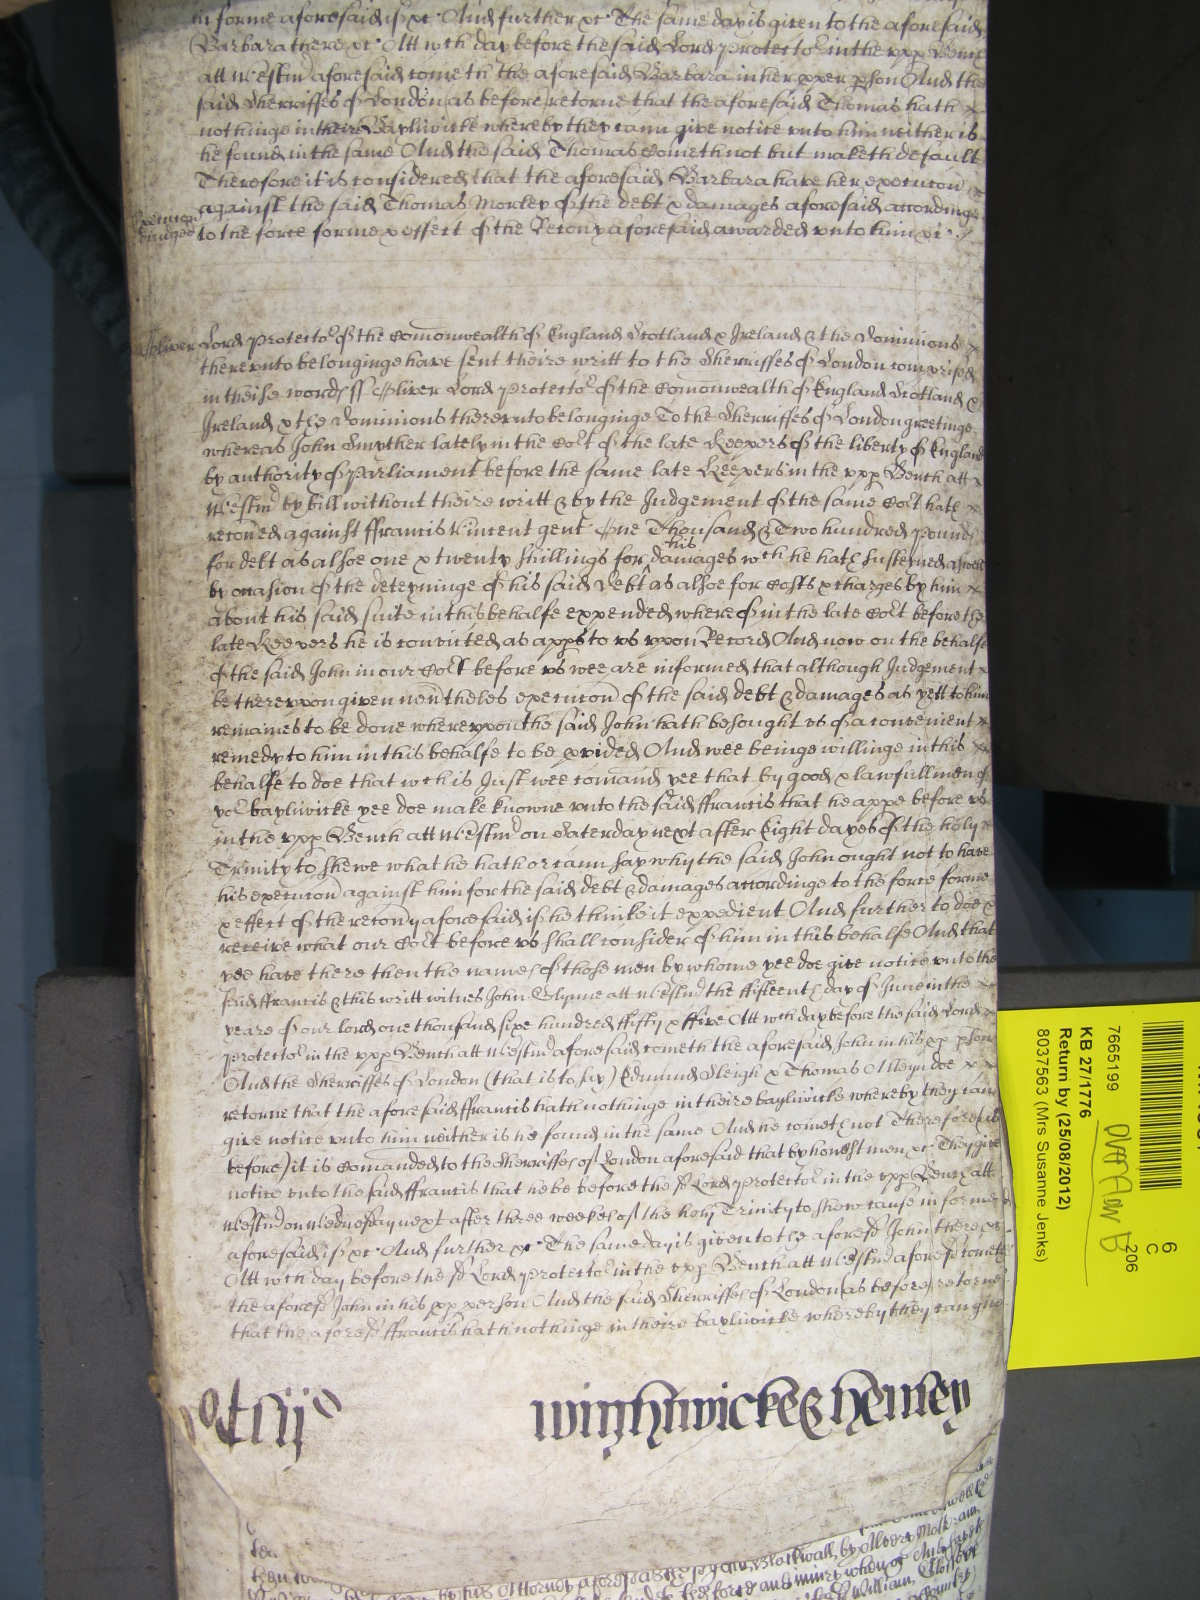 in forme aforesaid is &c And further &c The same day is given to the aforesaid
Barbara there &c Att wch day before the said Lord protector in the upp Bench
att Westm aforesaid cometh the aforesaid Barbara in her pper pson And the
said Sherriffes of London (as before) retorne that the aforesaid Thomas hath
nothinge in theire Bayliwicke whereby they cann give notice unto him neither is
he found in the same And the said Thomas cometh not but maketh default
Therefore it is considered that the aforesaid Barbara have her execucon
against the said Thomas Morley of the debt & damages aforesaid accordinge
to the force forme & effect of the Recovy aforesaid awarded unto him &c
Oliver Lord protector of the Comonwealth of England Scotland & Ireland & the Dominions
thereunto belonginge have sent theire writt to the Sherriffes of London comprised
in theise words ss Oliver Lord protector of the Comonwealth of England Scotland &
Ireland & the Dominions thereunto belonginge To the Sherriffes of London greetinge
whereas John Smyther lately in the Cort of the late Keepers of the liberty of England
by authority of Parliament before the same late Keepers in the upp Bench att
Westm by bill without theire writt & by the Judgement of the same Cort hath
recoved against ffrancis Vincent gent One Thousand & Two hundred pounds
for debt as alsoe one & twenty shillings for his damages wch he hath susteyned aswell
by occasion of the deteyninge of his said Debt as alsoe for Costs & charges by him
about his said suite in this behalfe expended whereof in the late Cort before the
late Keepers he is convicted as appes to us uppon Record And now on the behalfe
of the said John in our Cort before us wee are informed that although Judgement
be thereuppon given nevtheles execucon of the said debt & damages as yett to him
remaines to be done whereuppon the said John hath besought us of a convenient
remedy to him in this behalfe to be pvided And wee beinge willinge in this
behalfe to doe that wch is Just wee comand yee that by good & lawfull men of
yor bayliwicke yee doe make knowne unto the said ffrancis that he appe before us
in the upp Bench att Westm on Saterday next after Eight dayes of the holy
Trinity to shewe what he hath or cann say why the said John ought not to have
his execucon against him for the said debt & damages accordinge to the force forme
& effect of the recovy aforesaid is he thinke it expedient And further to doe &
receive what our Cort before us shall consider of him in this behalfe And that
yee have there then the names of those men by whome yee doe give notice unto the
said ffrancis & this writt witnes John Glynne att Westm the fifteenth day of June in the
yeare of our lord one thousand sixe hundred fiffty & ffive Att wch day before the said Lord
protector in the upp Bench att Westm aforesaid cometh the aforesaid John in his pp pson
And the Sherriffes of London (that is to say) Edmund Sleigh & Thomas Alleyn doe
retorne that the aforesaid ffrancis hath nothinge in theire bayliwicke whereby they cann
give notice unto him neither is he found in the same And he cometh not Therefore as
before) it is Comanded to the Sherriffes of London aforesaid that by honest men &c They give
notice unto the said ffrancis that he be before the sd Lord protector in the upp Bench att
Westm on Wednesday next after three weekes of the holy Trinity to shew cause in forme
aforesaid is &c And further &c The same day is given to the aforesd John there &c
Att wch day before the sd Lord protector in the upp Bench att Westm aforesd cometh
the aforesd John in his pp person And the said Sherriffes of London (as before) retorne
that the aforesd ffrancis hath nothinge in theire bayliwicke whereby they can give
winghtwicke & henley
7665199
KB 27/1776
Return by (25/08/2012)
8037563 (Mrs Susanne Jenks)
6
C
206